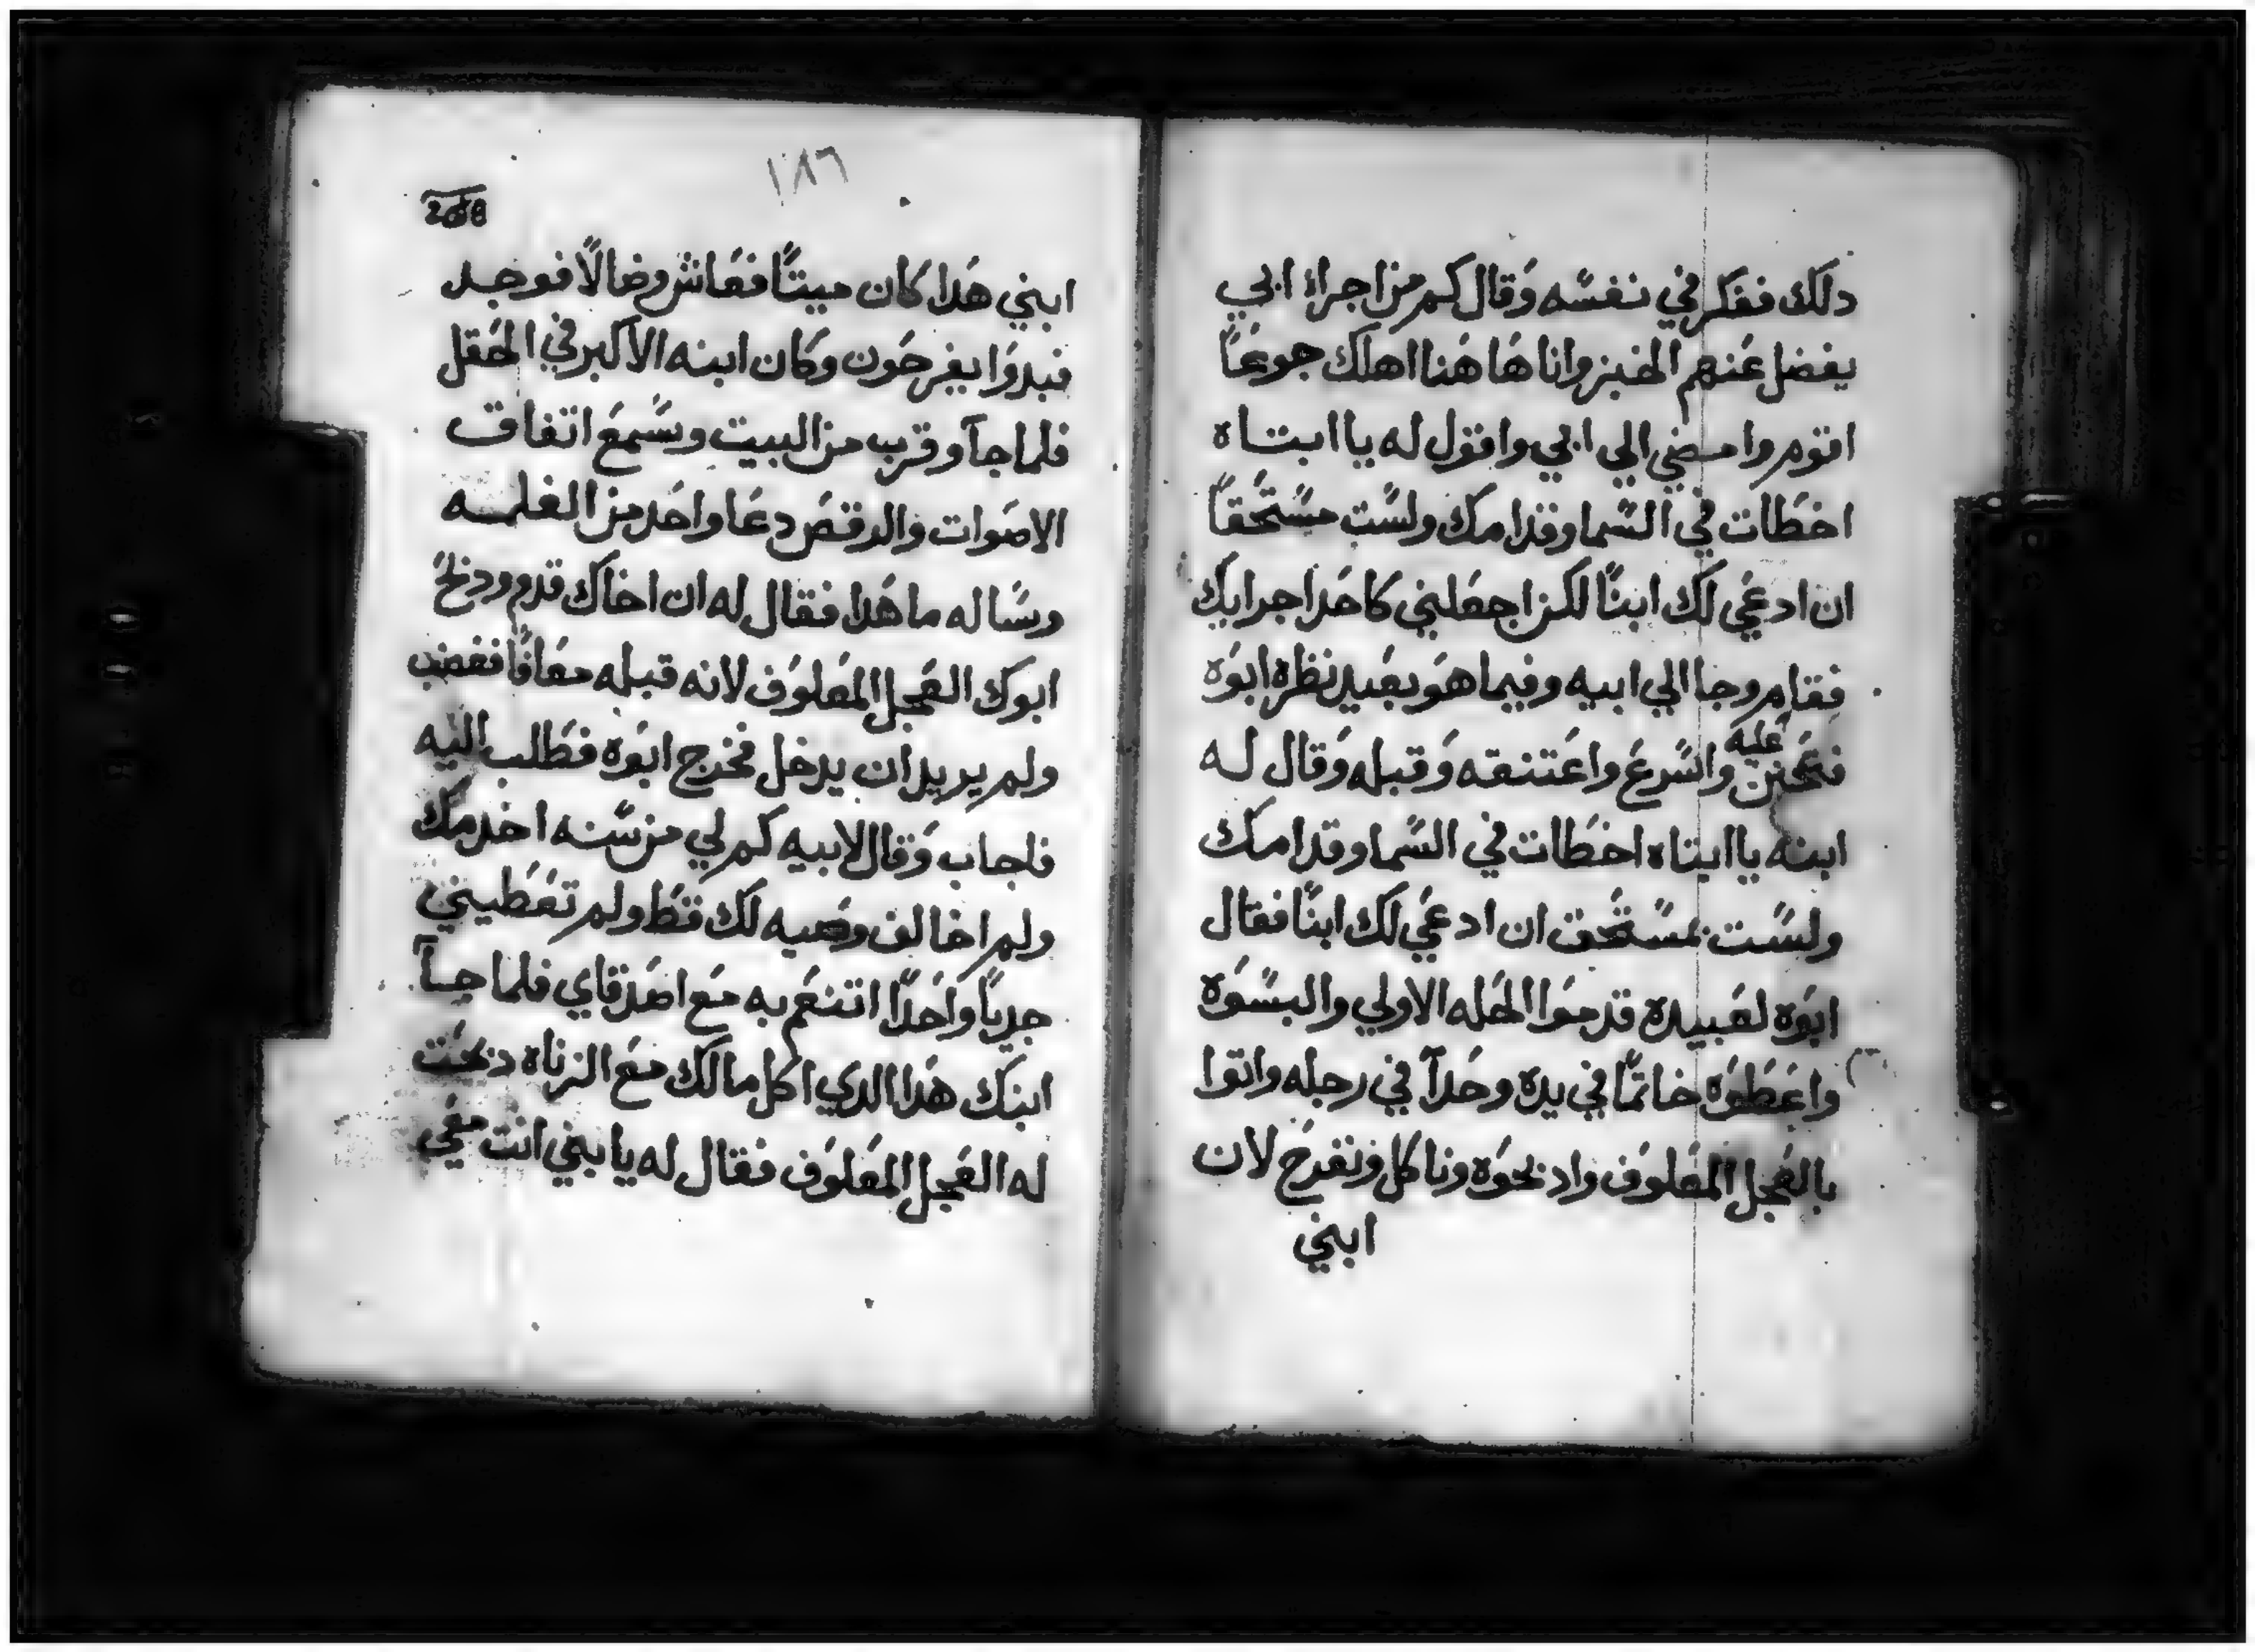 دلك ففكر في نفسه وقال كم من اجراء ابي
يفضل عنهم الخبز وانا هاهنا اهلك جوعًا
اقوم وامضي الي ابي واقول له يا ابتاه
اخطات في السما وقدامك ولست مستحقاً
ان ادعي لك ابنًا لكن اجعلني كاحد اجرايك
فقام وجا الي ابيه وفيما هو بعيد نظره ابوه
فتحنن عليه واسرع واعتنقه وقبله وقال له
ابنه يا ابتاه اخطات في السما وقدامك
ولست بمستحق ان ادعي لك ابنًا فقال
ابوه لعبيده قدموا الحله الاولي والبسوه
واعطوه خاتمًا في يده وحدآ في رجله واتوا
بالعجل المعلوف وادبحوه وناكل ونفرح لان
ابني
١٨٦
ابني هدا كان ميتًا فعاش وضالًا فوجد
فبدوا يفرحون وكان ابنه الاكبر في الحقل
فلما جآ وقرب من البيت وسمع اتفاق
الاصوات والرقص دعا واحد من الغلمه
وساله ما هدا فقال له ان اخاك قدم ودبح
ابوك العجل المعلوف لانه قبله معافًا فغضب
ولم يريد ان يدخل فخرج ابوه فطلب اليه
فاجاب وقال لابيه كم لي من سنه اخدمك
ولم اخالف وصيه لك قط ولم تعطيني
جديًا واحدًا اتنعم به مع اصدقاي فلما جآ
ابنك هدا الدي اكل مالك مع الزناه دبحت
له العجل المعلوف فقال له يا بني انت معي